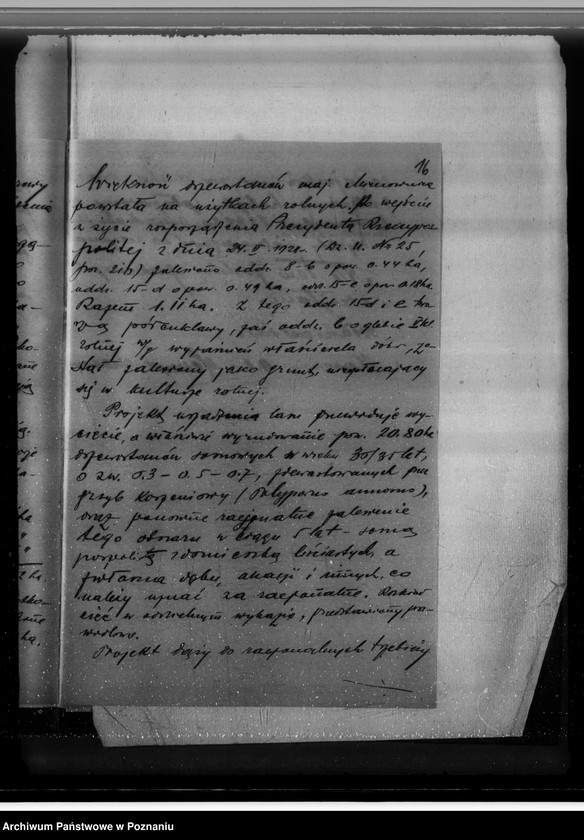 16
Większość drzewostanów maj.
powstała na użytkach rolnych. Po wejściu
w życie rozporządzenia Prezydenta Rzeczypos
politej z dnia 24. 1928. (Dz. U. No 25,
poz. zalesiono oddz. 8-b o pow. 0.44 ha,
oddz. 15-d o pow. 0.49 ha, oddz. 15-l o pow. 0.18 ha
Razem 1.11 ha. Z tego oddz. 15 d i l two
rzą półenklawy, zaś oddz. b o glebie kl.
rolnej w/g wyjaśnień właściciela dóbr, zo-
stał zalesiony jako grunt, nieopłacający
się w kulturze rolnej.
Projekt urządzenia lasu przewiduje wy-
cięcie, a właściwie wyrudowanie pow. 20.80 ha
drzewostanów sosnowych w wieku 30/35 lat,
o zw. 0.3 – 0.5 – 0.7, zdewastowanych przez
grzyb korzeniowy (Polyporus annosus),
oraz ponowne racjonalne zalesienie
tego obszaru w ciągu 5 lat – sosną
pospolitą z domieszką liściastych, a
zwłaszcza dębu, akacji i innych, co
należy uznać za racjonalne. Rozmie
cięć w odnośnym wykazie, przedstawiony pra-
widłowo.
Projekt dąży do racjonalnych trzebieży
Archiwum Państwowe w Poznaniu